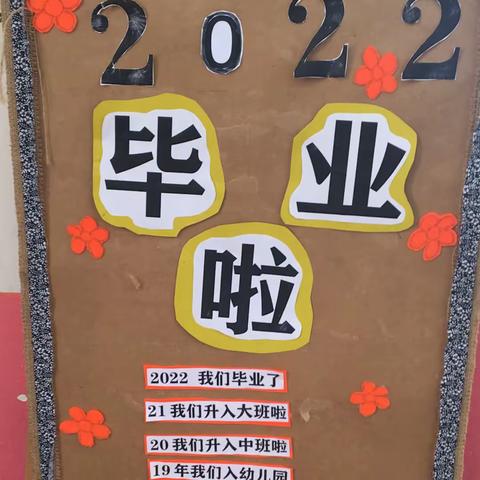 2022
毕业
啦
2022 我们毕业了
21我们升入大班啦
20我们升入中班啦
19年我们入幼儿园